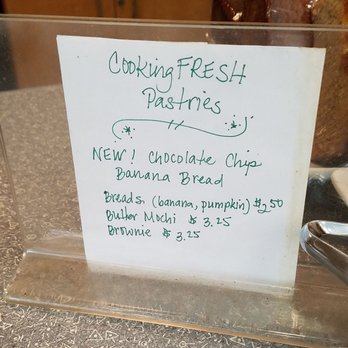 Cooking FRESH
Pastries
NEW! Chocolate Chip
Banana Bread
Breads (banana, pumpkin) $2.50
Butter Mochi $3.25
Brownie $3.25